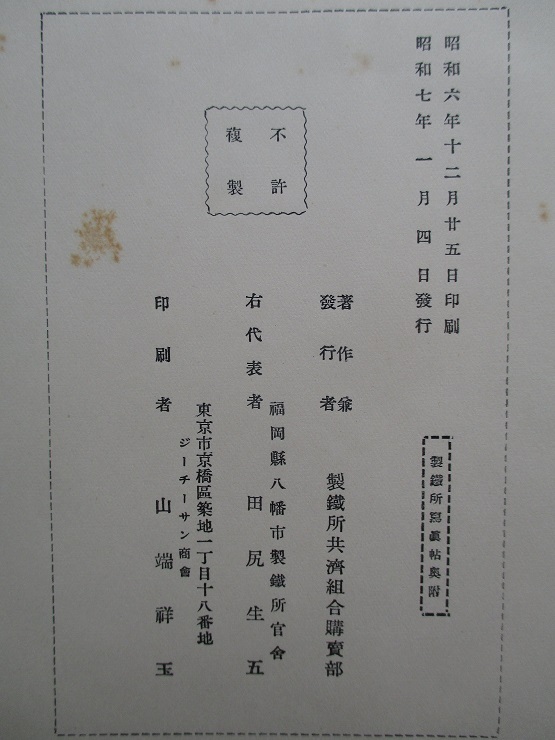 昭和六年十二月廿五日印刷
昭和七年一月四日發行
製鐵所寫眞帖奧附
不許
複製
著作兼
發行者
製鐵所共濟組合購賣部
福岡縣八幡市製鐵所官舍
右代表者 田尻生五
東京市京橋區築地一丁目十八番地
ジーチーサン商會
印刷者 山端祥玉